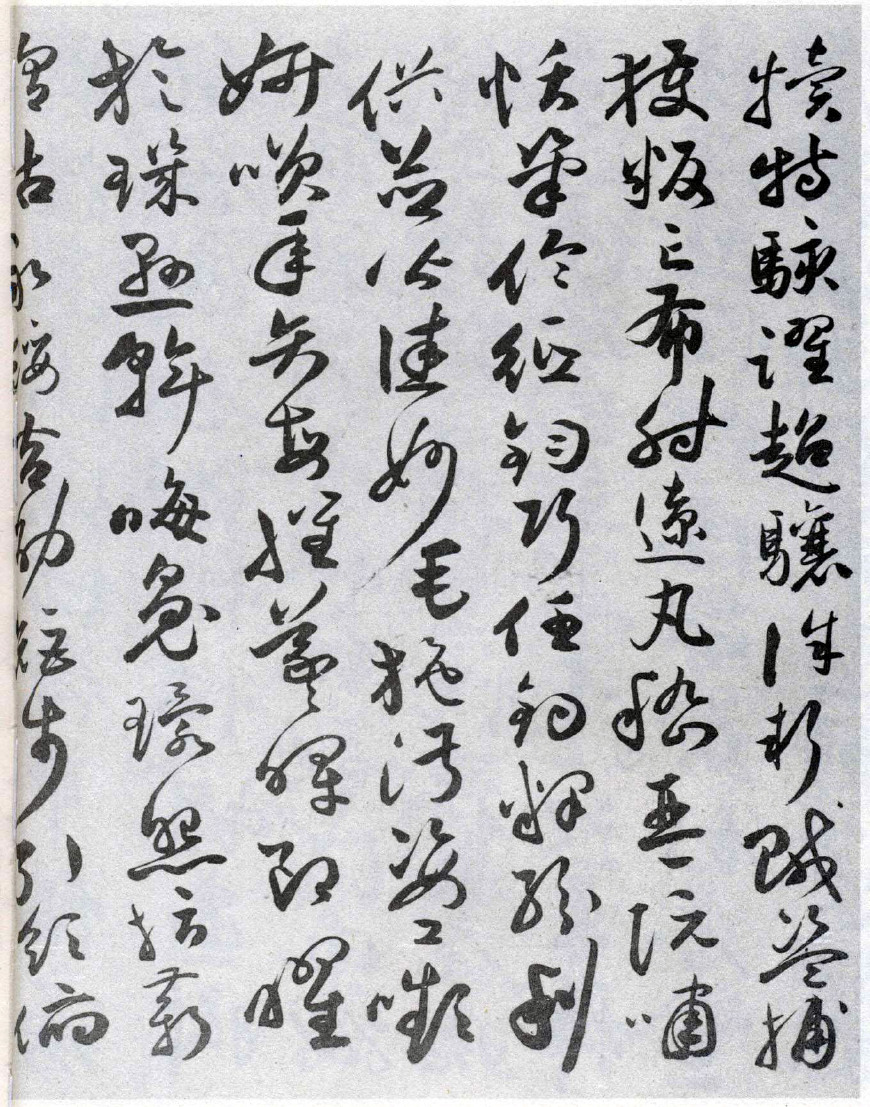 犢特駭躍超驤誅斬賊盜捕
獲叛亡布射遼丸嵇琴阮嘯
恬筆倫紙鈞巧任釣釋紛利
俗並皆佳妙毛施淑姿工嚬
妍笑年矢每催羲暉朗曜
璇璣懸斡晦魄環照指薪
永綏吉劭矩步引領俯